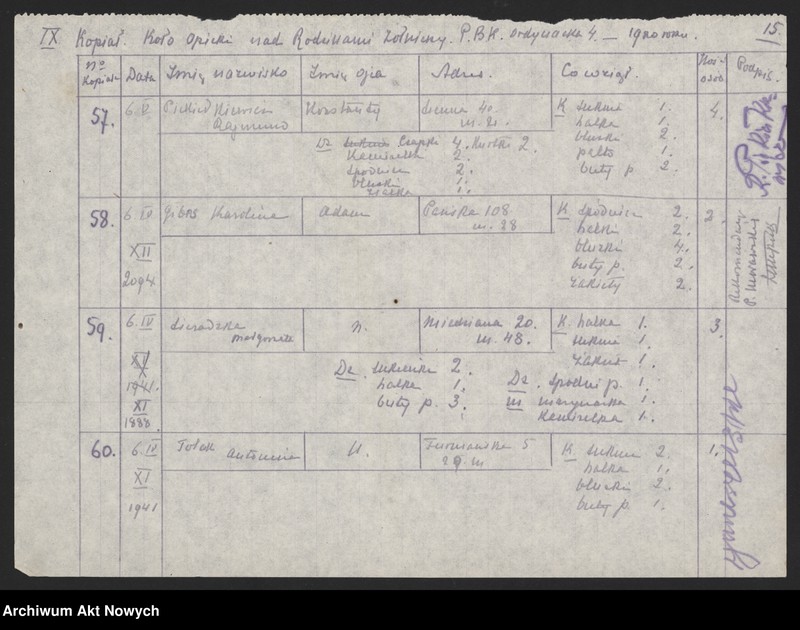 IX Kopiał. Koło Opieki nad Rodzinami Żołnierzy. P.B.K. Ordynacka 4. — 1940 roku. 15
No Kopiału Data Imię nazwisko Imię ojca Adres. Co wziął. Ilość osób Podpis.
57. 6 IV Rajmund Konstanty Sienna 40. K suknia 1. 4.
m. 21. halka 1.
bluzki 2.
palto 1.
buty p 2.
Dz Czapki 4.
Kamizelka 2.
Spódnica 2.
bluzki 1.
58. 6 IV Karolina Adam Pańska 108 K Spódnica 2. 2.
m. 28 halki 2.
XII bluzki 4.
2094 buty p. 2.
żakiety 2.
59. 6. IV Sieradzka n. Miedziana 20. K. halka 1. 3.
Małgorzata m. 48. suknia 1.
XI żakiet 1.
1941. Dz. sukienka 2. Dz. Spodni p. 1.
XI halka 1. m marynarka 1.
1888. buty p. 3. Kamizelka 1.
60. 6. IV Antonina Furmańska 5 K suknia 2. 1.
29. m halka 1.
XI bluzki 2.
1941 buty p. 1.
Archiwum Akt Nowych